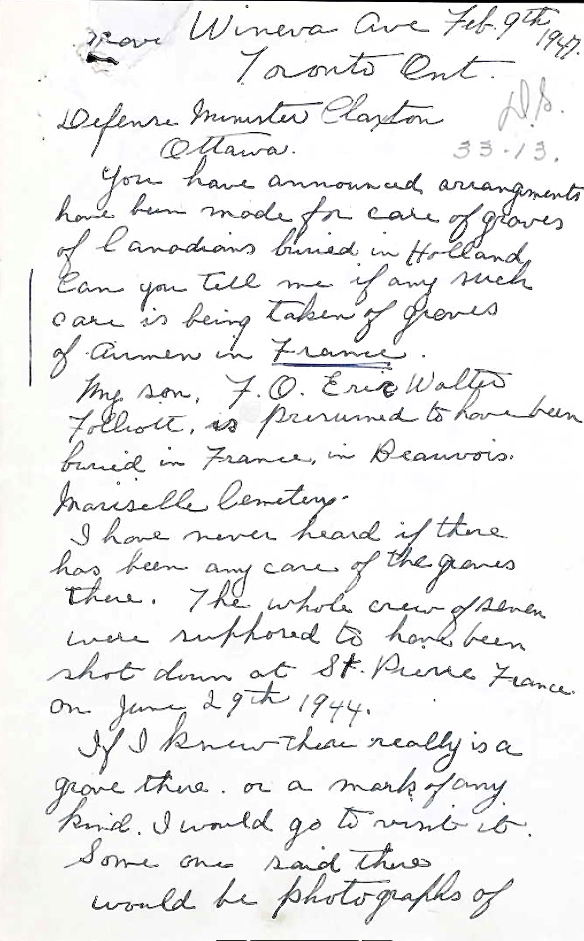 Wineva Ave Feb. 9th 1947.
Toronto Ont.
Defense Minister Claxton
D.S.
Ottawa.
33-13.
You have announced arrangments
have been made for care of graves
of Canadians buried in Holland
Can you tell me if any such
care is being taken of graves
of airmen in France.
My son, F.O. Eric Walter
Folliott, is presumed to have been
buried in France, in Beauvois.
Mariselle Cemetery.
I have never heard if there
has been any care of the graves
there. The whole crew of seven
were supposed to have been
shot down at St. Pierre France
on June 29th 1944.
If I knew there really is a
grave there. or a mark of any
kind. I would go to visit it.
Some one said there
would be photographs of